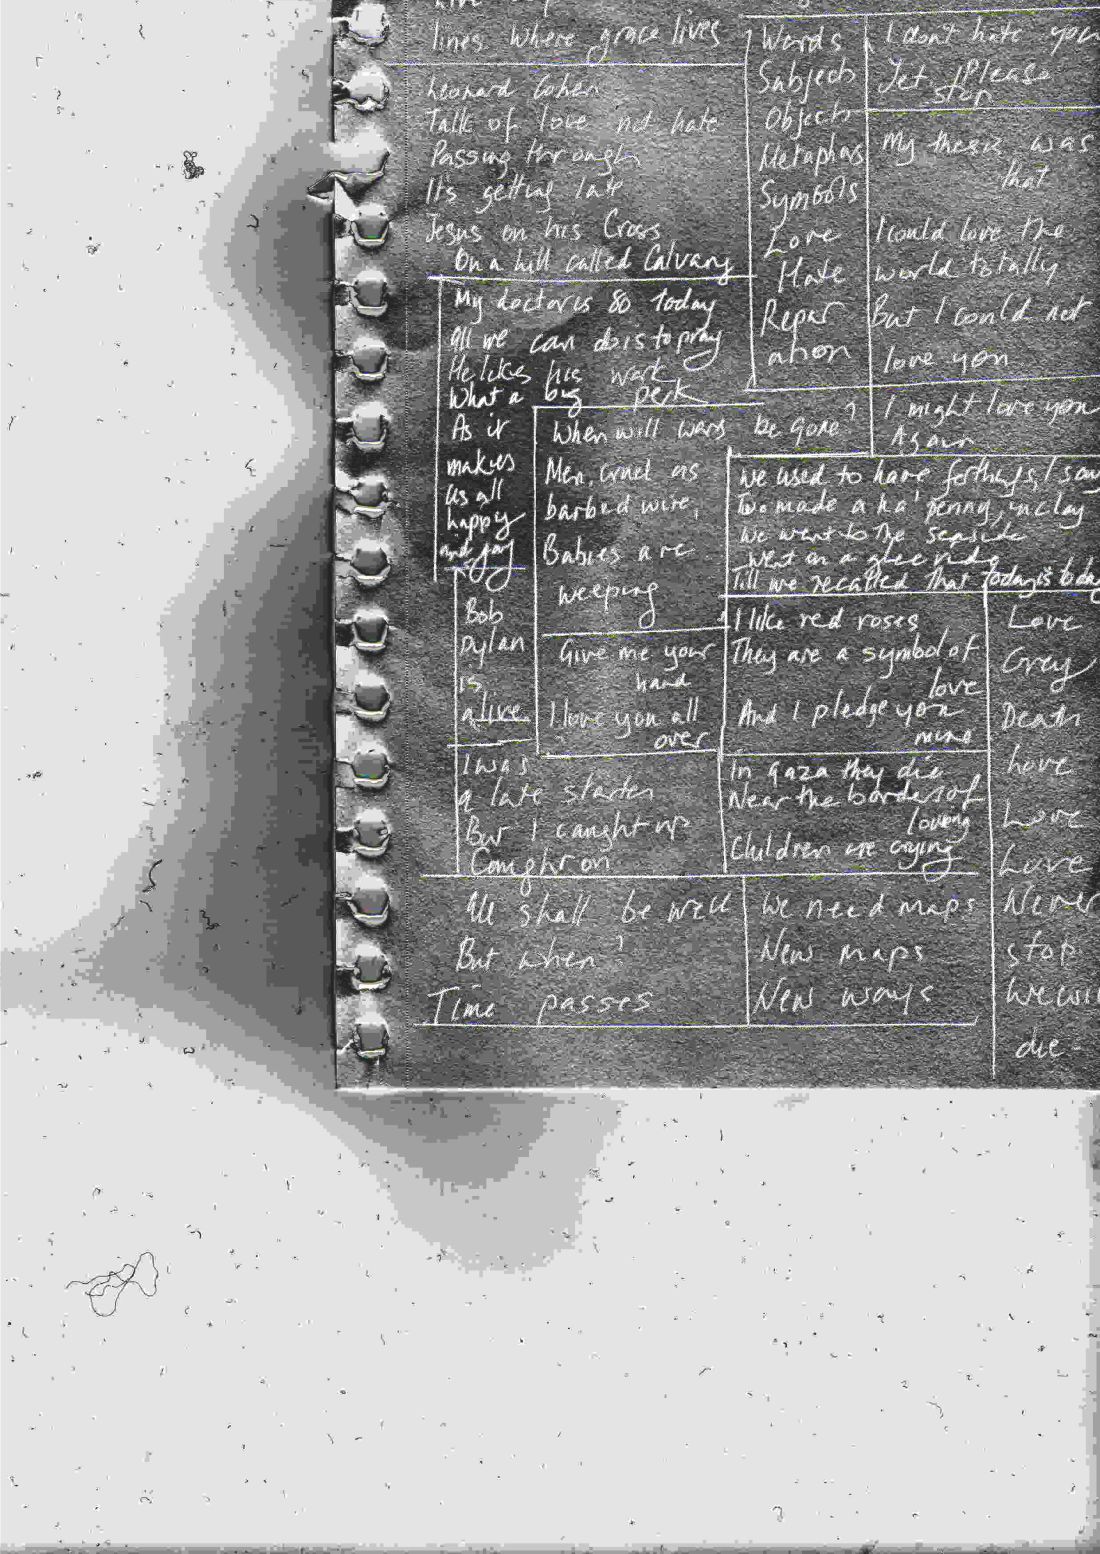 lines where grace lives
Leonard Cohen
Talk of love not hate
Passing through
Its getting late
Jesus on his Cross
On a hill called Calvary
Words
Subjects
Objects
Metaphors
Symbols
Love
Hate
Repar
ation
I dont hate you
Yet Please
stop
My thesis was
that
I could love the
world totally
But I could not
love you
I might love you
Again
My doctor is 80 today
All we can do is to pray
He likes his work
What a big perk
As it
makes
us all
happy
and gay
When will wars be gone?
Men, cruel as
barbed wire,
Babies are
weeping
We used to have farthings, I say
Two made a ha'penny, in clay
We went to the seaside
Went on a
Till we recalled that today is today
Bob
Dylan
is
alive
Give me your
hand
I love you all
over
I like red roses
They are a symbol of
love
And I pledge you
mine
Love
Grey
Death
Love
Love
Love
Never
stop
We will
die.
I was
a late starter
But I caught up
Caught on
In Gaza they die
Near the borders of
loving
Children are crying
All shall be well
But when?
Time passes
We need maps
New maps
New ways